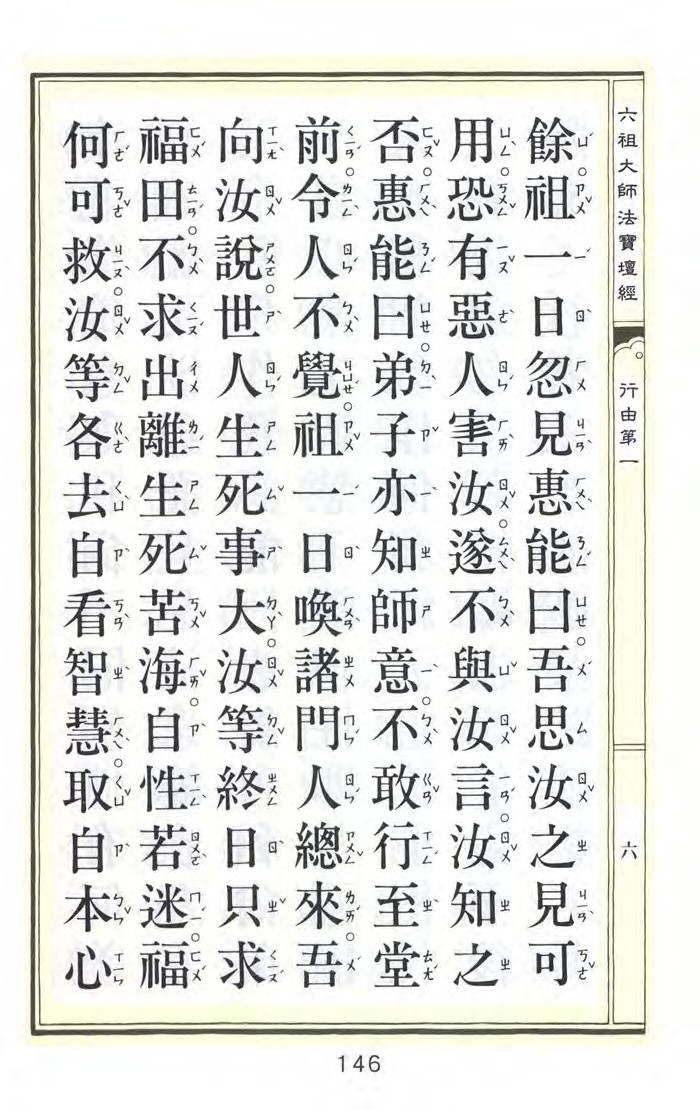 六祖大師法寶壇經
行由第一
六
餘。祖一日忽見惠能曰。吾思汝之見可
用。恐有惡人害汝。遂不與汝言。汝知之
否。惠能曰。弟子亦知師意。不敢行至堂
前。令人不覺。祖一日喚諸門人總來。吾
向汝說。世人生死事大。汝等終日只求
福田。不求出離生死苦海。自性若迷。福
何可救。汝等各去自看智慧。取自本心
146